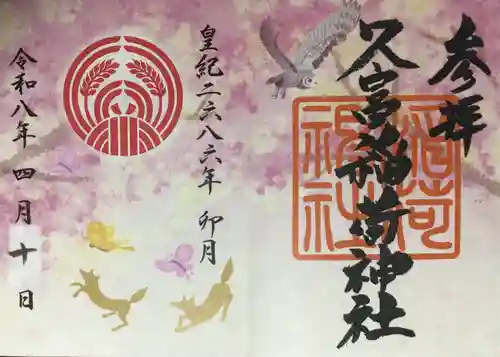 参拝
久富稲荷神社
稲荷
神社
皇紀二六八六年 卯月
令和八年 四月 十日